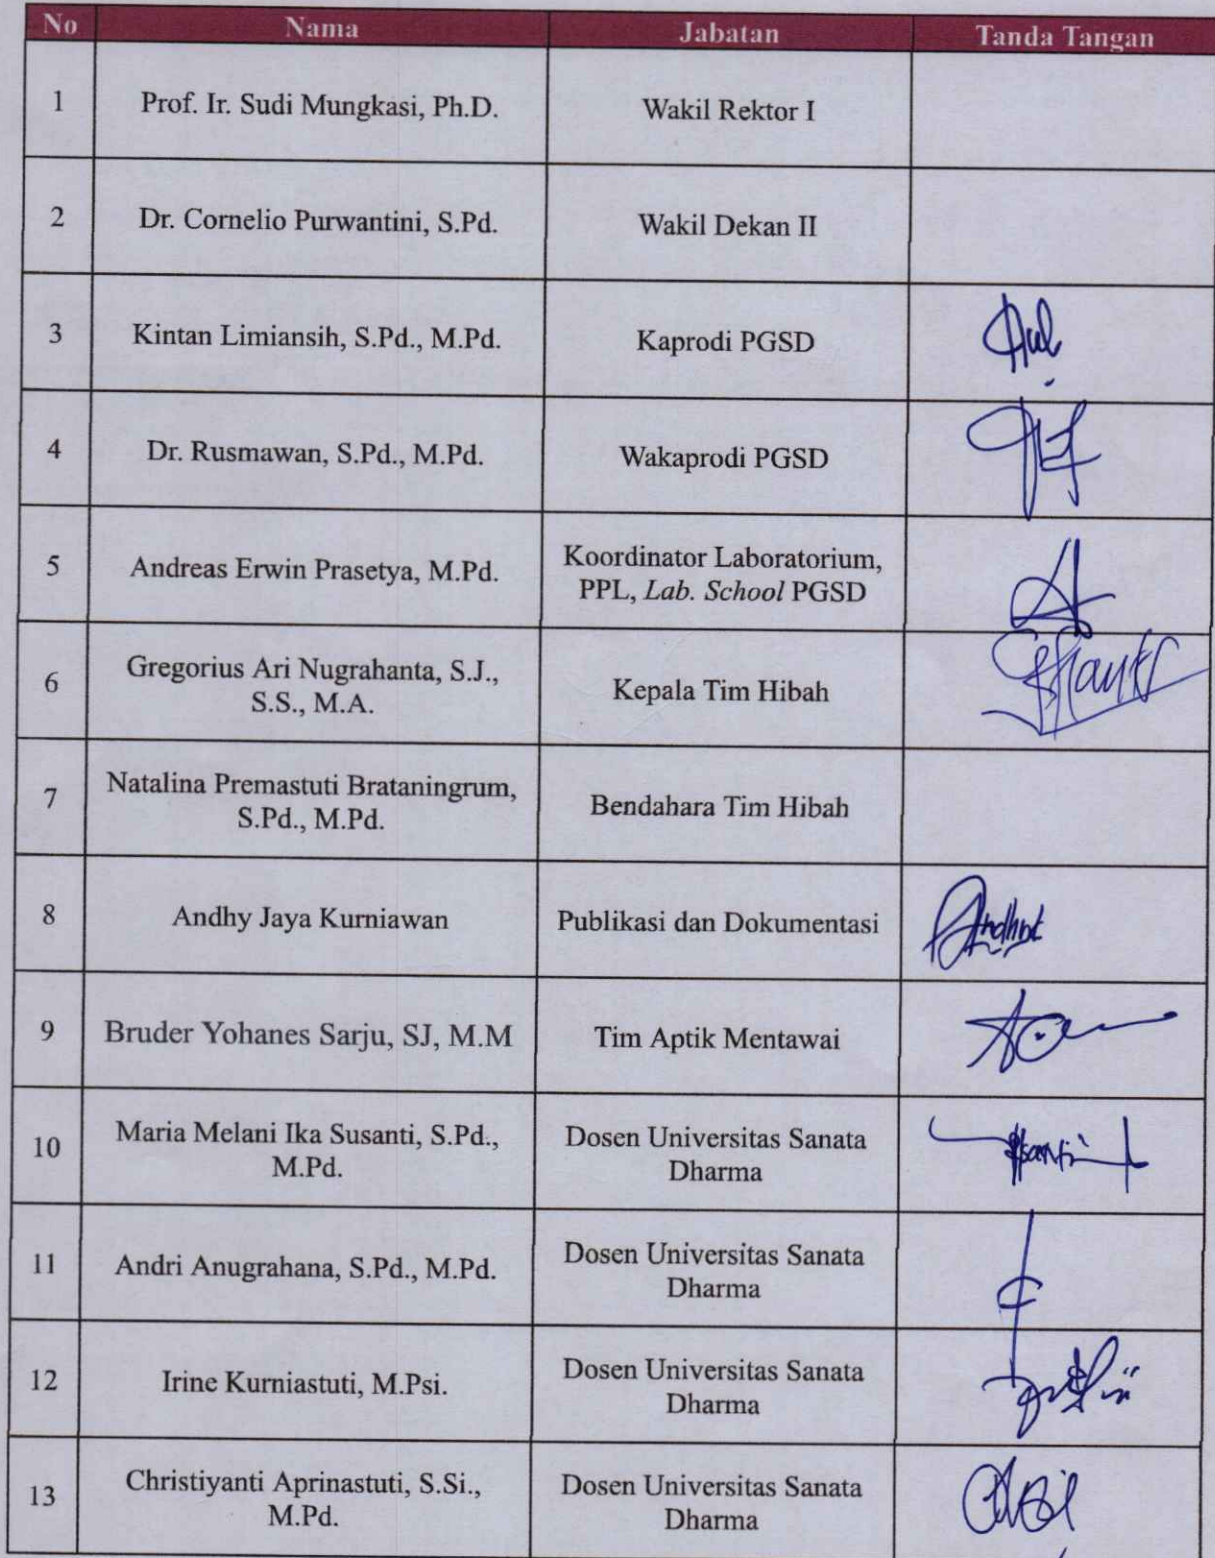 No Nama Jabatan Tanda Tangan
1 Prof. Ir. Sudi Mungkasi, Ph.D. Wakil Rektor I
2 Dr. Cornelio Purwantini, S.Pd. Wakil Dekan II
3 Kintan Limiansih, S.Pd., M.Pd. Kaprodi PGSD
4 Dr. Rusmawan, S.Pd., M.Pd. Wakaprodi PGSD
5 Andreas Erwin Prasetya, M.Pd. Koordinator Laboratorium,
PPL, Lab. School PGSD
6 Gregorius Ari Nugrahanta, S.J., Kepala Tim Hibah
S.S., M.A.
7 Natalina Premastuti Brataningrum, Bendahara Tim Hibah
S.Pd., M.Pd.
8 Andhy Jaya Kurniawan Publikasi dan Dokumentasi
9 Bruder Yohanes Sarju, SJ, M.M Tim Aptik Mentawai
10 Maria Melani Ika Susanti, S.Pd., Dosen Universitas Sanata
M.Pd. Dharma
11 Andri Anugrahana, S.Pd., M.Pd. Dosen Universitas Sanata
Dharma
12 Irine Kurniastuti, M.Psi. Dosen Universitas Sanata
Dharma
13 Christiyanti Aprinastuti, S.Si., Dosen Universitas Sanata
M.Pd. Dharma